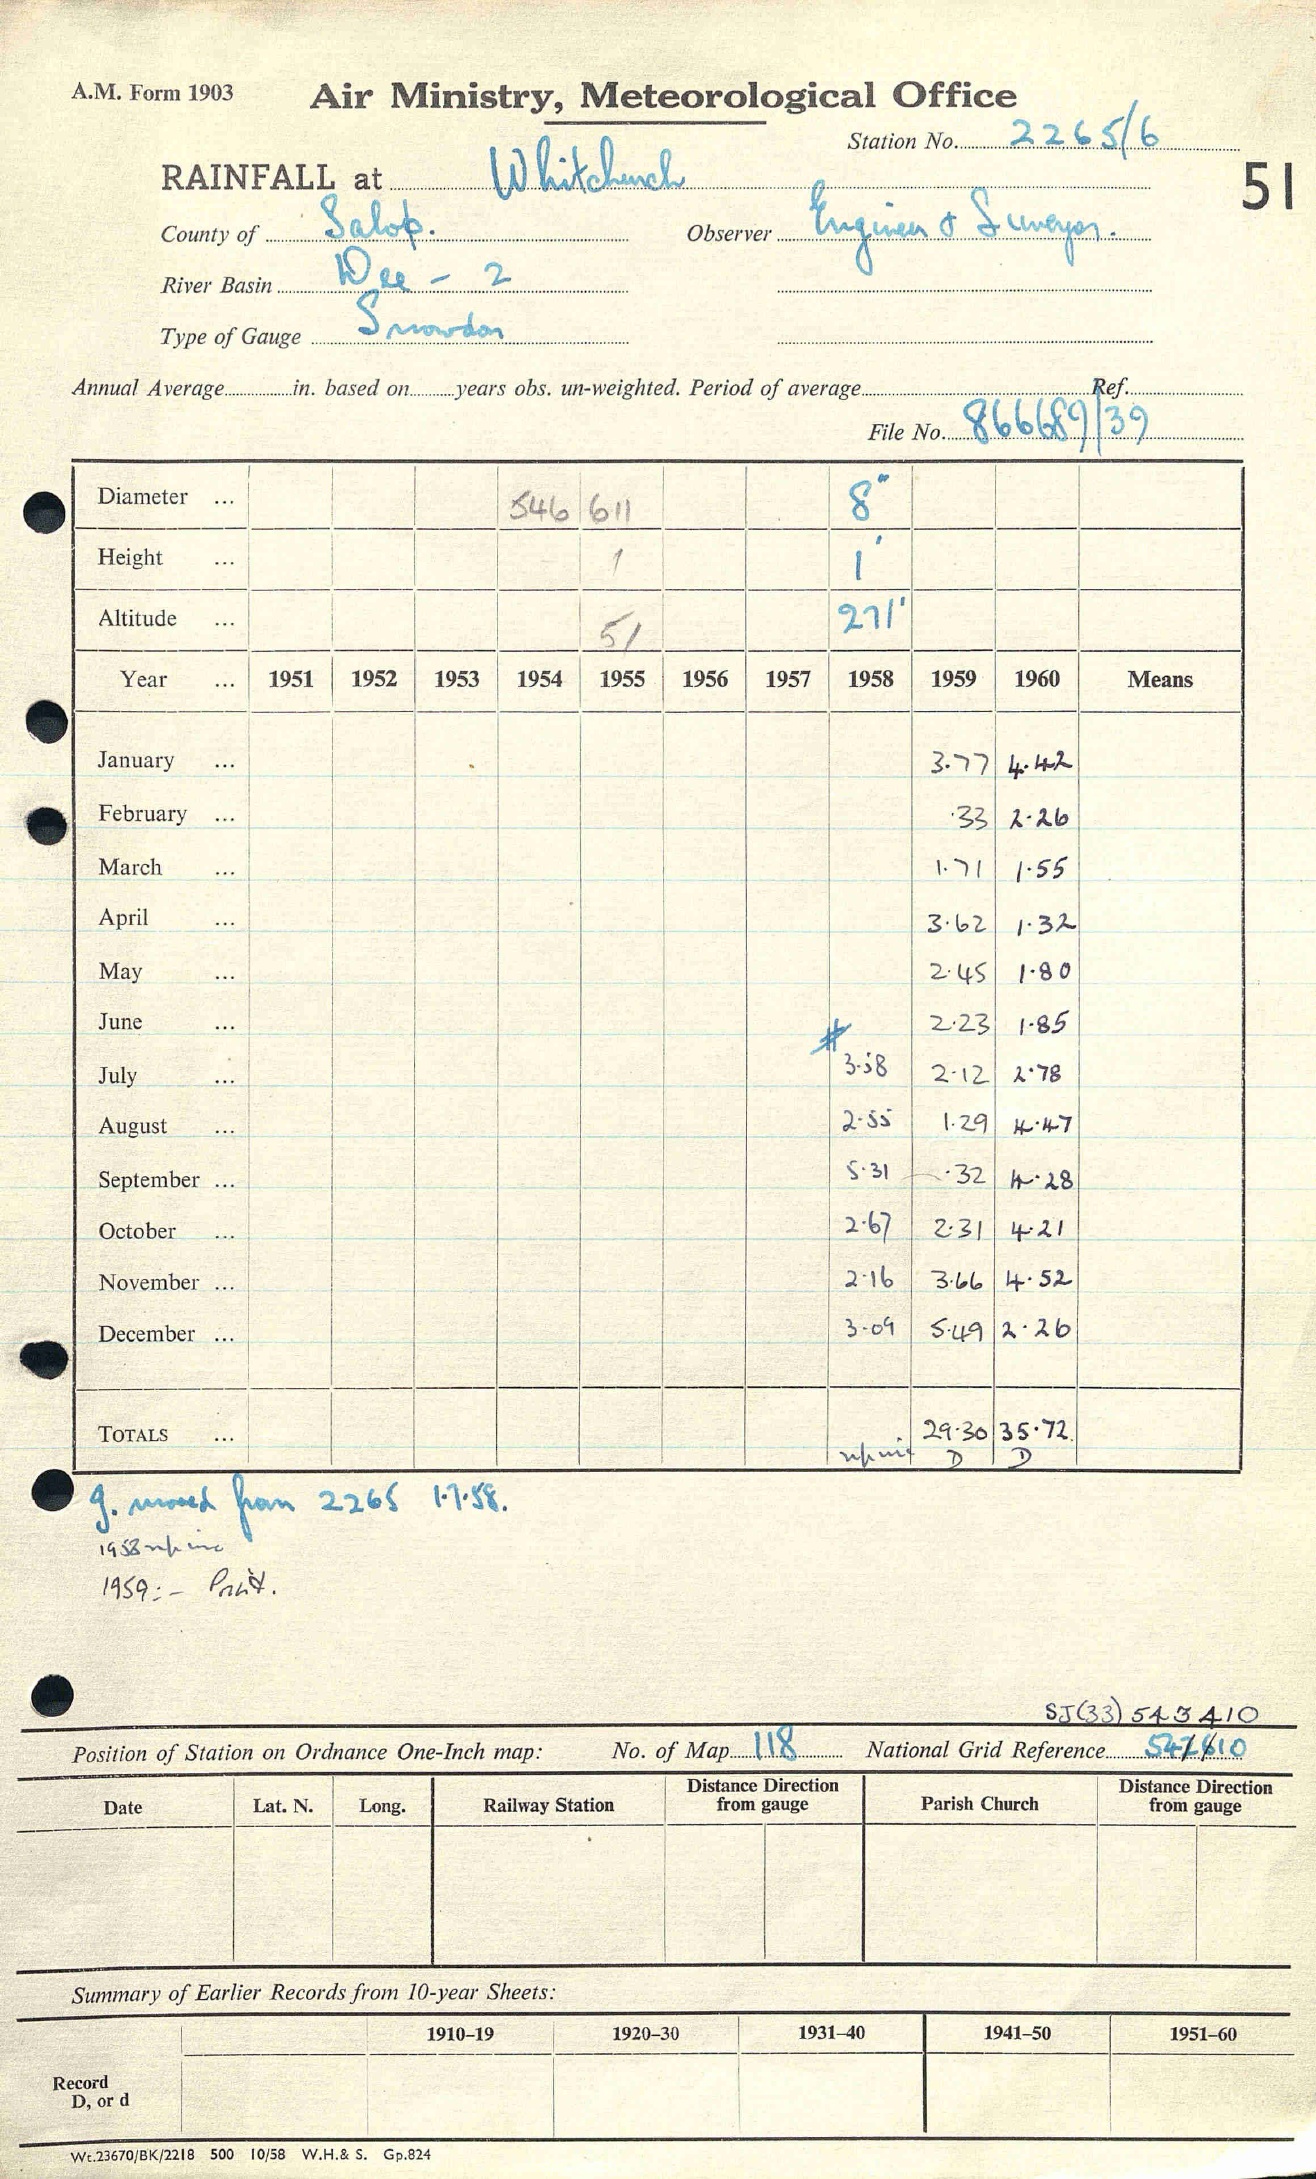 A.M. Form 1903 Air Ministry, Meteorological Office
Station No. 2265/6
RAINFALL at Whitchurch 51
County of Salop. Observer Engineer & Surveyor.
River Basin Dee - 2
Type of Gauge Snowdon
Annual Average in. based on years obs. un-weighted. Period of average Ref.
File No. 866689/39
Diameter ... 546 611 8"
Height ... 1 1'
Altitude ... 51 271'
Year ... 1951 1952 1953 1954 1955 1956 1957 1958 1959 1960 Means
January ... 3.77 4.42
February ... .33 2.26
March ... 1.71 1.55
April ... 3.62 1.32
May ... 2.45 1.80
June ... 2.23 1.85
July ... 3.58 2.12 2.78
August ... 2.55 1.29 4.47
September ... 5.31 .32 4.28
October ... 2.67 2.31 4.21
November ... 2.16 3.66 4.52
December ... 3.09 5.49 2.26
TOTALS ... 29.30 35.72
D D
g. moved from 2265 1.7.58.
1958
1959:-
SJ(33) 543410
Position of Station on Ordnance One-Inch map: No. of Map 118 National Grid Reference
Date Lat. N. Long. Railway Station Distance Direction from gauge Parish Church Distance Direction from gauge
Summary of Earlier Records from 10-year Sheets:
1910–19 1920–30 1931–40 1941–50 1951–60
Record
D, or d
Wt.23670/BK/2218 500 10/58 W.H.& S. Gp.824